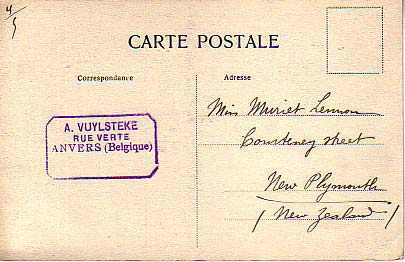 4/5
CARTE POSTALE
Correspondance
Adresse
A. VUYLSTEKE
RUE VERTE
ANVERS (Belgique)
Miss Muriel Lennon
Courteney street
New Plymouth
/ New Zealand /